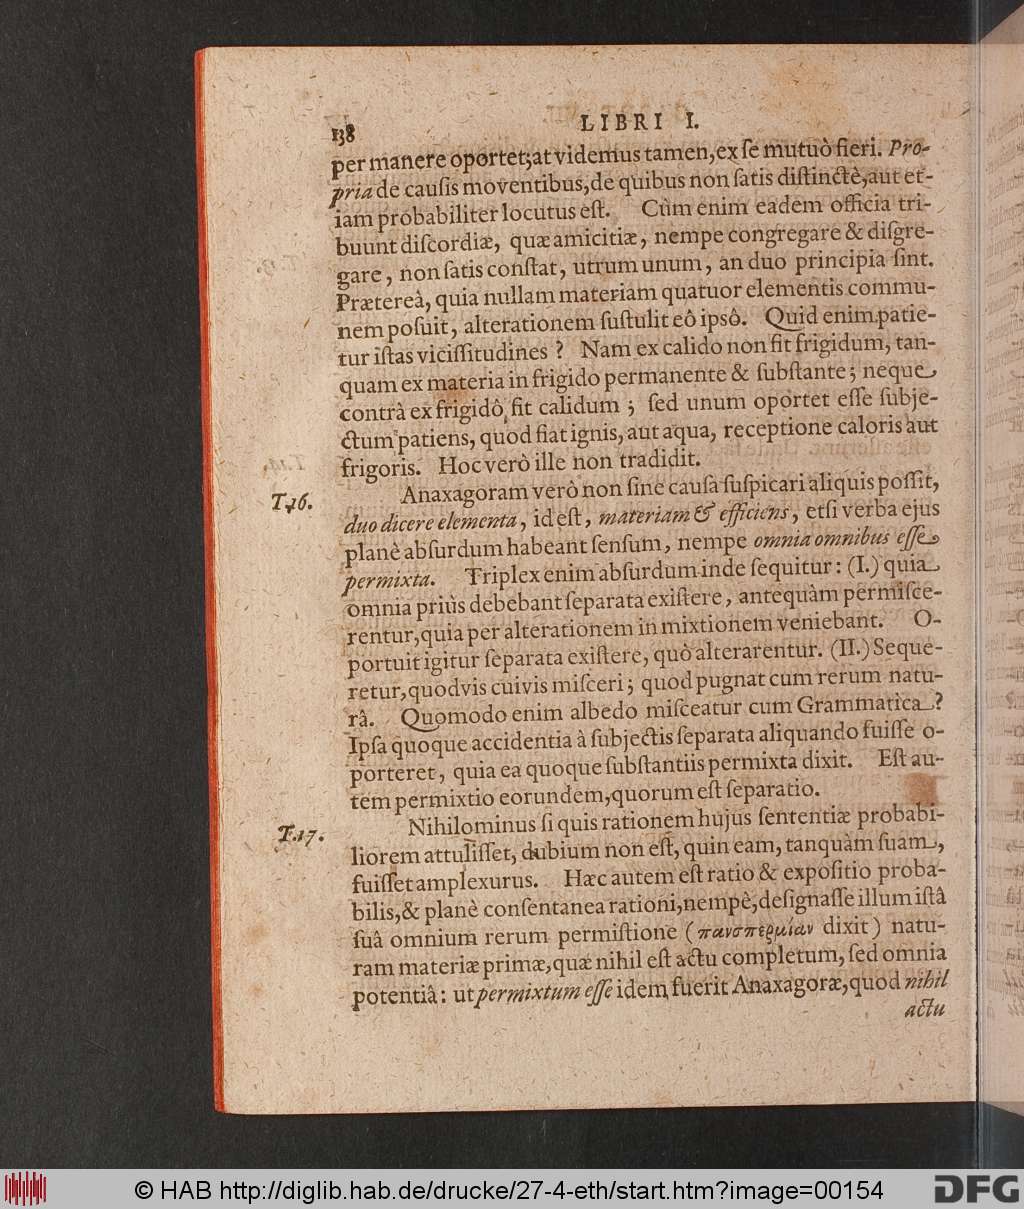 138
LIBRI I.
per manere oportet;at videmus tamen,ex ſe mutuò fieri. Pro-
pria de cauſis moventibus,de quibus non ſatis diſtinctè,aut et-
iam probabiliter locutus eſt. Cùm enim eadem officia tri-
buunt diſcordiæ, quæ amicitiæ, nempe congregare & diſgre-
gare, non ſatis conſtat, utrum unum, an duo principia ſint.
Prætereà, quia nullam materiam quatuor elementis commu-
nem poſuit, alterationem ſuſtulit eô ipsô. Quid enim patie-
tur iſtas viciſſitudines ? Nam ex calido non fit frigidum, tan-
quam ex materia in frigido permanente & ſubſtante; neque
contrà ex frigidô fit calidum ; ſed unum oportet eſſe ſubje-
ctum patiens, quod fiat ignis, aut aqua, receptione caloris aut
frigoris. Hoc verò ille non tradidit.
T.16.
Anaxagoram verò non ſine cauſa ſuſpicari aliquis poſſit,
duo dicere elementa, id eſt, materiam & efficiens, etſi verba ejus
planè abſurdum habeant ſenſum, nempe omnia omnibus eſſe
permixta. Triplex enim abſurdum inde ſequitur: (I.) quia
omnia priùs debebant ſeparata exiſtere, antequàm permiſce-
rentur,quia per alterationem in mixtionem veniebant. O-
portuit igitur ſeparata exiſtere, quò alterarentur. (II.) Seque-
retur,quodvis cuivis miſceri; quod pugnat cum rerum natu-
râ. Quomodo enim albedo miſceatur cum Grammatica?
Ipſa quoque accidentia à ſubjectis ſeparata aliquando fuiſſe o-
porteret, quia ea quoque ſubſtantiis permixta dixit. Eſt au-
tem permixtio eorundem,quorum eſt ſeparatio.
T.17.
Nihilominus ſi quis rationem hujus ſententiæ probabi-
liorem attuliſſet, dubium non eſt, quin eam, tanquàm ſuam,
fuiſſet amplexurus. Hæc autem eſt ratio & expoſitio proba-
bilis,& planè conſentanea rationi,nempè,deſignaſſe illum iſtâ
ſuâ omnium rerum permiſtione (πανσπερμίαν dixit) natu-
ram materiæ primæ,quæ nihil eſt actu completum, ſed omnia
potentiâ: ut permixtum eſſe idem fuerit Anaxagoræ,quod nihil
actu
© HAB http://diglib.hab.de/drucke/27-4-eth/start.htm?image=00154
DFG